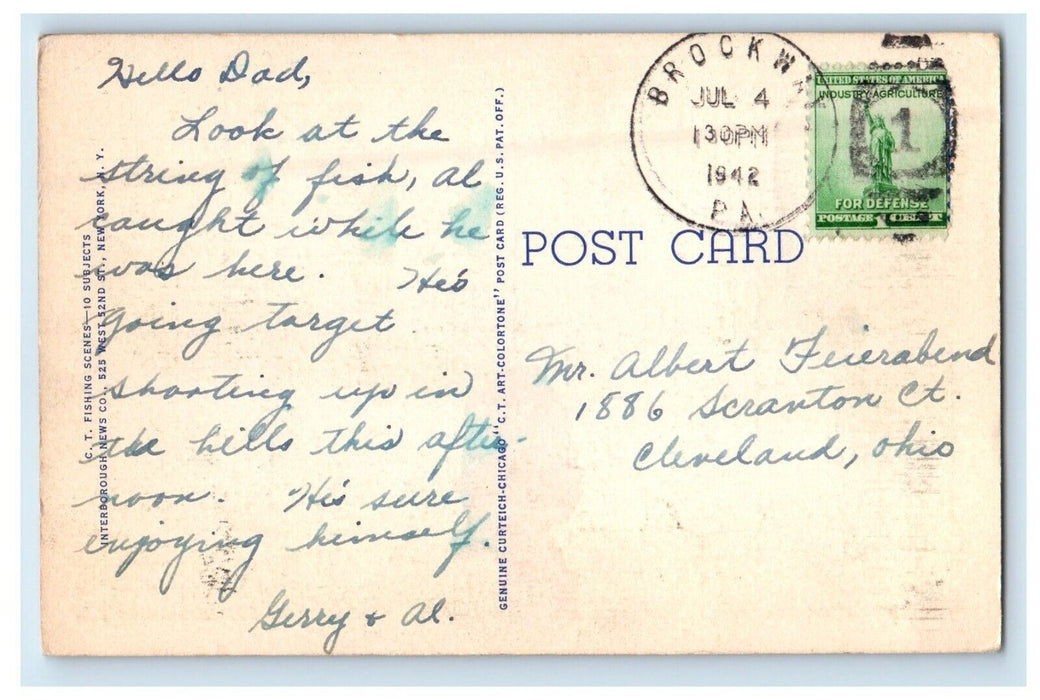 Hello Dad,
Look at the
string of fish, Al
caught while he
was here. He's
going target
shooting up in
the hills this after-
noon. He's sure
enjoying himself.
Gerry & Al.
C. T. FISHING SCENES—10 SUBJECTS
INTERBOROUGH NEWS CO., 525 WEST 52ND ST., NEW YORK, N. Y.
GENUINE CURTEICH-CHICAGO "C.T. ART-COLORTONE" POST CARD (REG. U.S. PAT. OFF.)
POST CARD
BROCKWAY
JUL 4
1 30PM
1942
PA.
UNITED STATES OF AMERICA
INDUSTRY·AGRICULTURE
1
FOR DEFENSE
POSTAGE 1 CENT
Mr. Albert Feierabend
1886 Scranton Ct.
Cleveland, Ohio